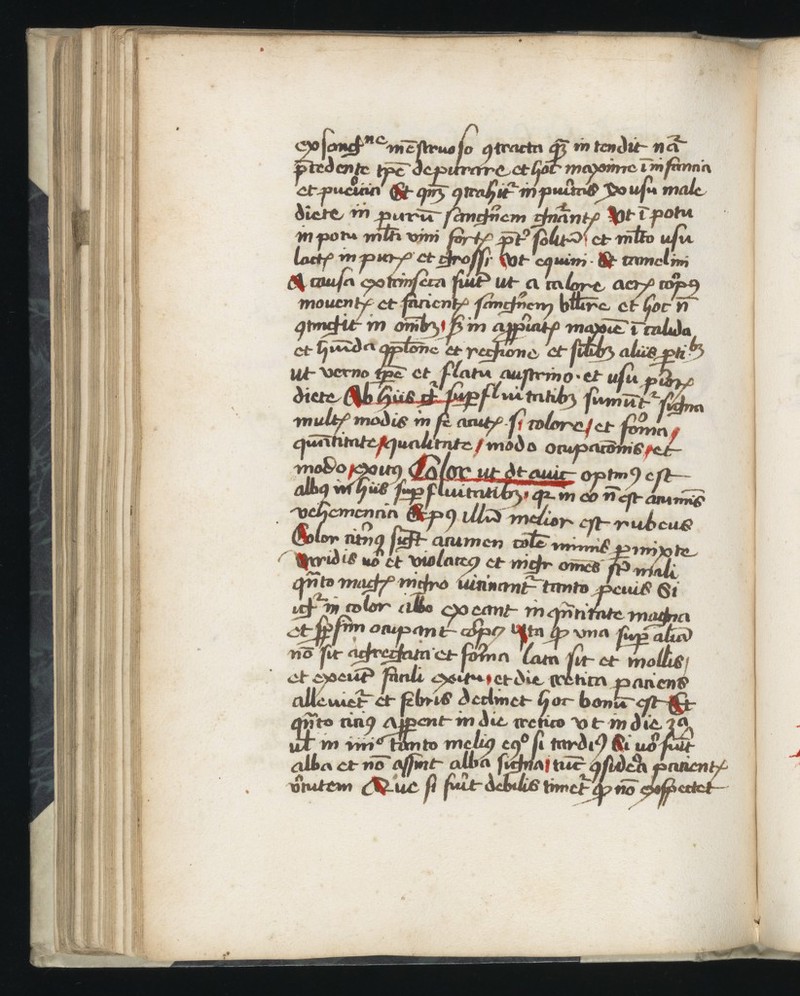 ex sang^ne mēstruoso ɔtracta qȝ intendit nā
p̄cedente tp̄e depurare et hoc maxime ī infancia
et puericia Et qn̄ ɔtrahit^r inpuritas ex usu male
diete in purū sanguīnem gn̄ant Ut ī potu
in potu ml̄ti vini fort p̄t solitū et ml̄to usu
lact in pur et grossi Ut equini · Et camelini
A causa extrinseca fiūt ut a calore aer corpꝯ
movent et facient sanguīnem bullire et hoc n̄
ɔtingit in omībȝ s̄ in appriat maxīe ī calida
et humīda ɔplōne et regione et silībȝ aliis p̄ti^bȝ
ut verno tp̄e et flatu austrino · et usu
diete Ab hiis g^r suꝑfluitatibȝ sumūt^r signa
mult modis in se acut si colore / et forma /
quātitate / qualitate / modo occupacōnis / et
modo / exitꝯ Color ut dt avic optimꝯ est
albꝯ in hiis suꝑfluitatibȝ qr in eo nō est acumīs
vehemencia Et pꝯ illū melior est rubeus
Color citrinꝯ sigt acumen cole nimis ꝑmixte
Viridis vo et violaceꝯ et nigr omēs st mali
qn̄to mag nigro vicinant^r tanto peius Si
ig^r in color albo exeant in qn̄titate magna
et sp̄sim occupant corpꝯ Ita qꝫ una suꝑ aliā
nō sit agregata et forma lata sit et mollis /
et exeūt facili exitu et die cretica paciens
alleviet^r et febris declinet hoc bonū est Et
qn̄to citiꝯ appent in die cretico ut in die 3ª
ul in iiii° tanto meliꝯ eq° si tardiꝯ Si vo fūt
alba et nō assint alba signa tūc ɔsidera pacient
virtutem Que si fūit debilis timet^r qꝫ nō exspectet